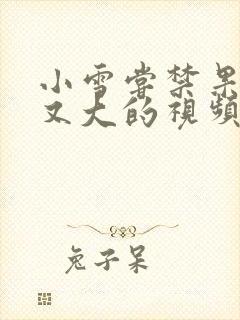 小雪嘗禁果
又大的視頻
兔子呆